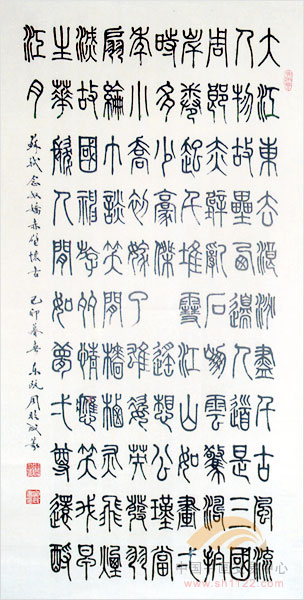 大江東去浪淘盡千古風流
人物故壘西邊人道是三國
周郎赤壁亂石崩雲驚濤拍
岸卷起千堆雪江山如畫一
時多少豪傑遙想公瑾當
年小喬初嫁了雄姿英發羽
扇綸巾談笑間檣櫓灰飛煙
滅故國神游多情應笑我早
生華髮人間如夢一尊還酹
江月
蘇軾念奴嬌赤壁懷古 己卯暮春
www.sh1122.com